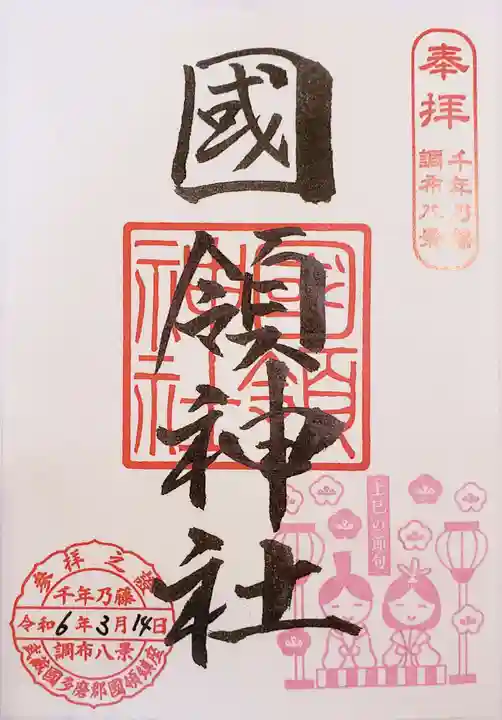 奉拝
千年乃藤
調布八景
國領神社
國領
神社
上巳の節句
参拝之證
千年乃藤
令和6年3月14日
調布八景
武蔵國多磨郡國領鎮座